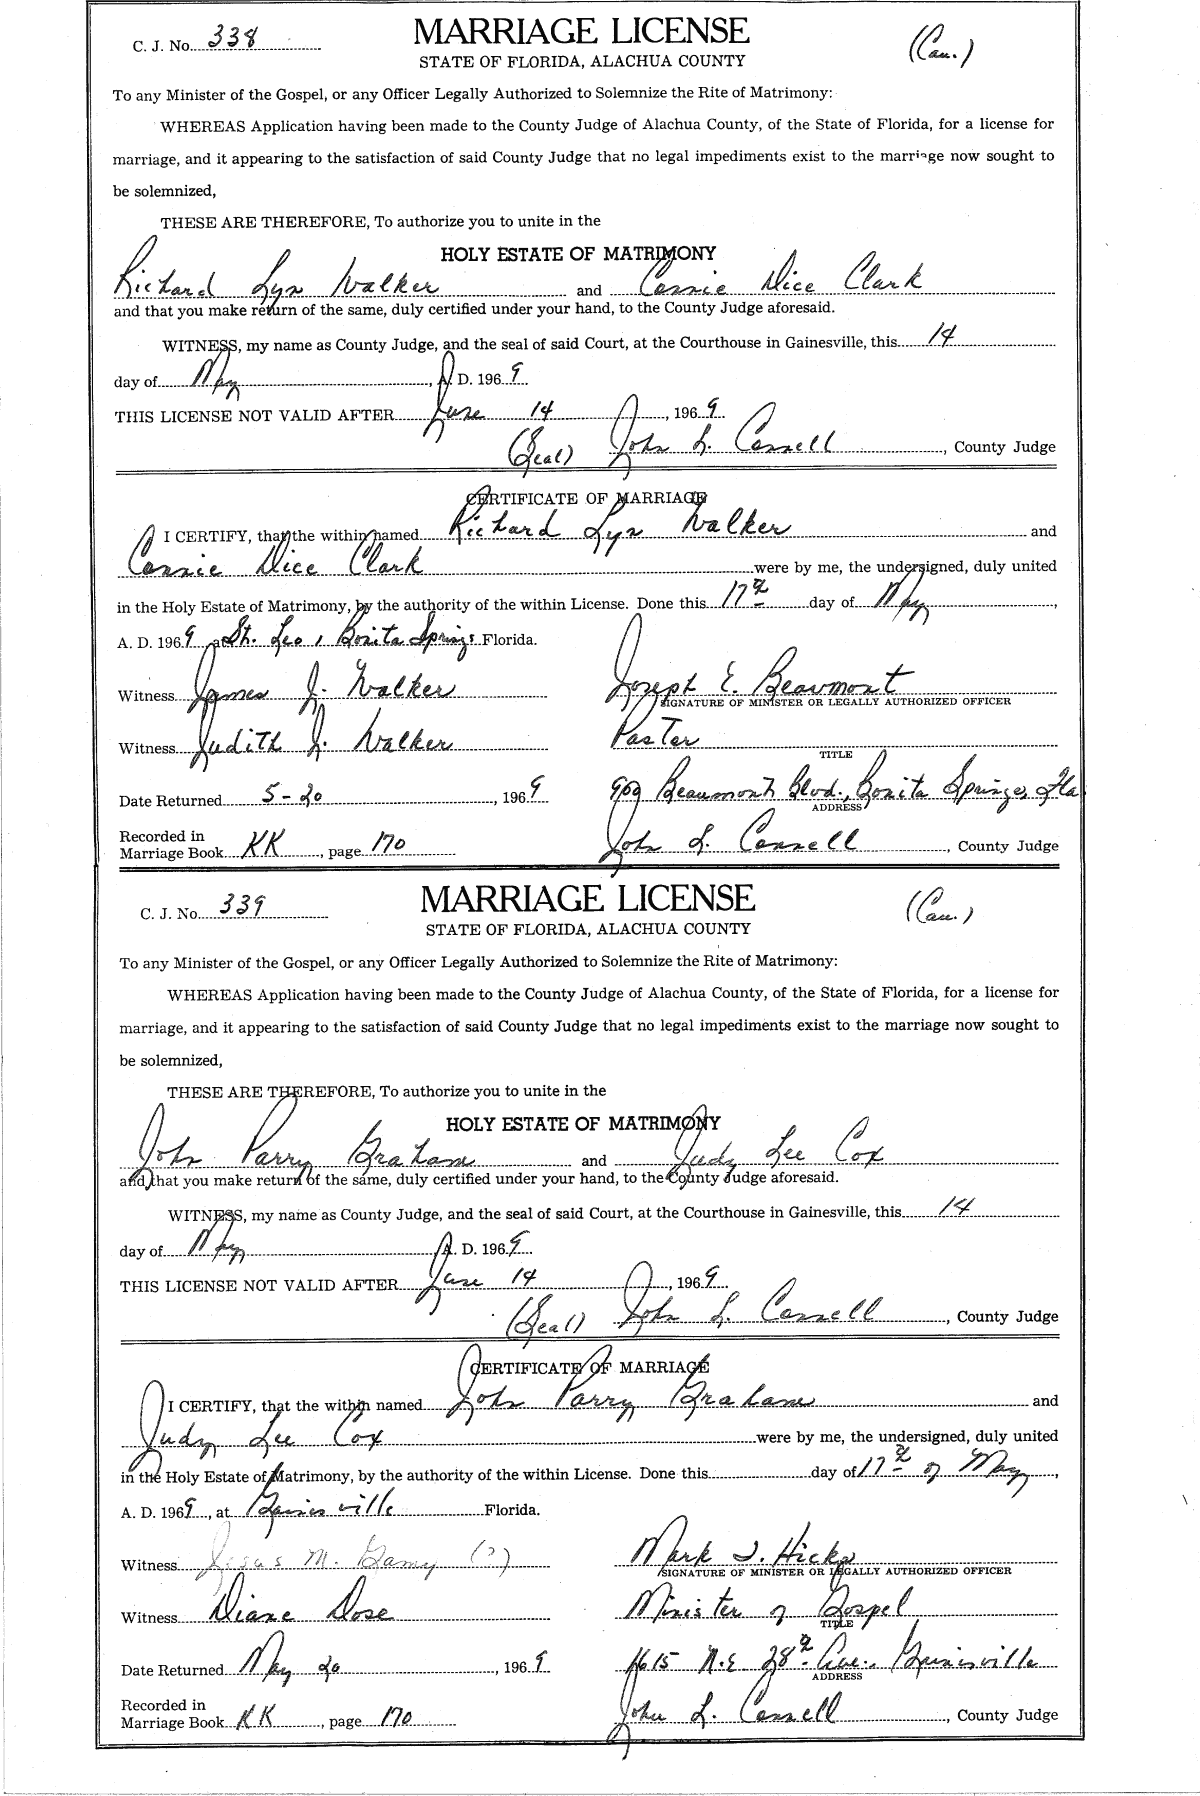 C. J. No. 338
MARRIAGE LICENSE
(Cau.)
STATE OF FLORIDA, ALACHUA COUNTY
To any Minister of the Gospel, or any Officer Legally Authorized to Solemnize the Rite of Matrimony:
WHEREAS Application having been made to the County Judge of Alachua County, of the State of Florida, for a license for
marriage, and it appearing to the satisfaction of said County Judge that no legal impediments exist to the marriage now sought to
be solemnized,
THESE ARE THEREFORE, To authorize you to unite in the
HOLY ESTATE OF MATRIMONY
Richard Lyn Walker and Connie Dice Clark
and that you make return of the same, duly certified under your hand, to the County Judge aforesaid.
WITNESS, my name as County Judge, and the seal of said Court, at the Courthouse in Gainesville, this 14
day of May, A. D. 1969
THIS LICENSE NOT VALID AFTER June 14, 1969
(Seal) John L. Connell, County Judge
CERTIFICATE OF MARRIAGE
I CERTIFY, that the within named Richard Lyn Walker and
Connie Dice Clark were by me, the undersigned, duly united
in the Holy Estate of Matrimony, by the authority of the within License. Done this 17th day of May,
A. D. 1969 at St. Leo, Bonita Springs Florida.
Witness James J. Walker Joseph E. Beaumont
SIGNATURE OF MINISTER OR LEGALLY AUTHORIZED OFFICER
Witness Judith J. Walker Pastor
TITLE
Date Returned 5-20, 1969 909 Beaumont Blvd., Bonita Springs, Fla
ADDRESS
Recorded in
Marriage Book KK, page 170 John L. Connell, County Judge
C. J. No. 339
MARRIAGE LICENSE
(Cau.)
STATE OF FLORIDA, ALACHUA COUNTY
To any Minister of the Gospel, or any Officer Legally Authorized to Solemnize the Rite of Matrimony:
WHEREAS Application having been made to the County Judge of Alachua County, of the State of Florida, for a license for
marriage, and it appearing to the satisfaction of said County Judge that no legal impediments exist to the marriage now sought to
be solemnized,
THESE ARE THEREFORE, To authorize you to unite in the
HOLY ESTATE OF MATRIMONY
John Parry Graham and Judy Lee Cox
and that you make return of the same, duly certified under your hand, to the County Judge aforesaid.
WITNESS, my name as County Judge, and the seal of said Court, at the Courthouse in Gainesville, this 14
day of May A. D. 1969
THIS LICENSE NOT VALID AFTER June 14, 1969
(Seal) John L. Connell, County Judge
CERTIFICATE OF MARRIAGE
I CERTIFY, that the within named John Parry Graham and
Judy Lee Cox were by me, the undersigned, duly united
in the Holy Estate of Matrimony, by the authority of the within License. Done this day of 17th of May,
A. D. 1969, at Gainesville Florida.
Witness M. (?) Mark I. Hicks
SIGNATURE OF MINISTER OR LEGALLY AUTHORIZED OFFICER
Witness Diane Dose Minister of Gospel
TITLE
Date Returned May 20, 1969 1615 N.E 28th Ave., Gainesville
ADDRESS
Recorded in
Marriage Book KK, page 170 John L. Connell, County Judge